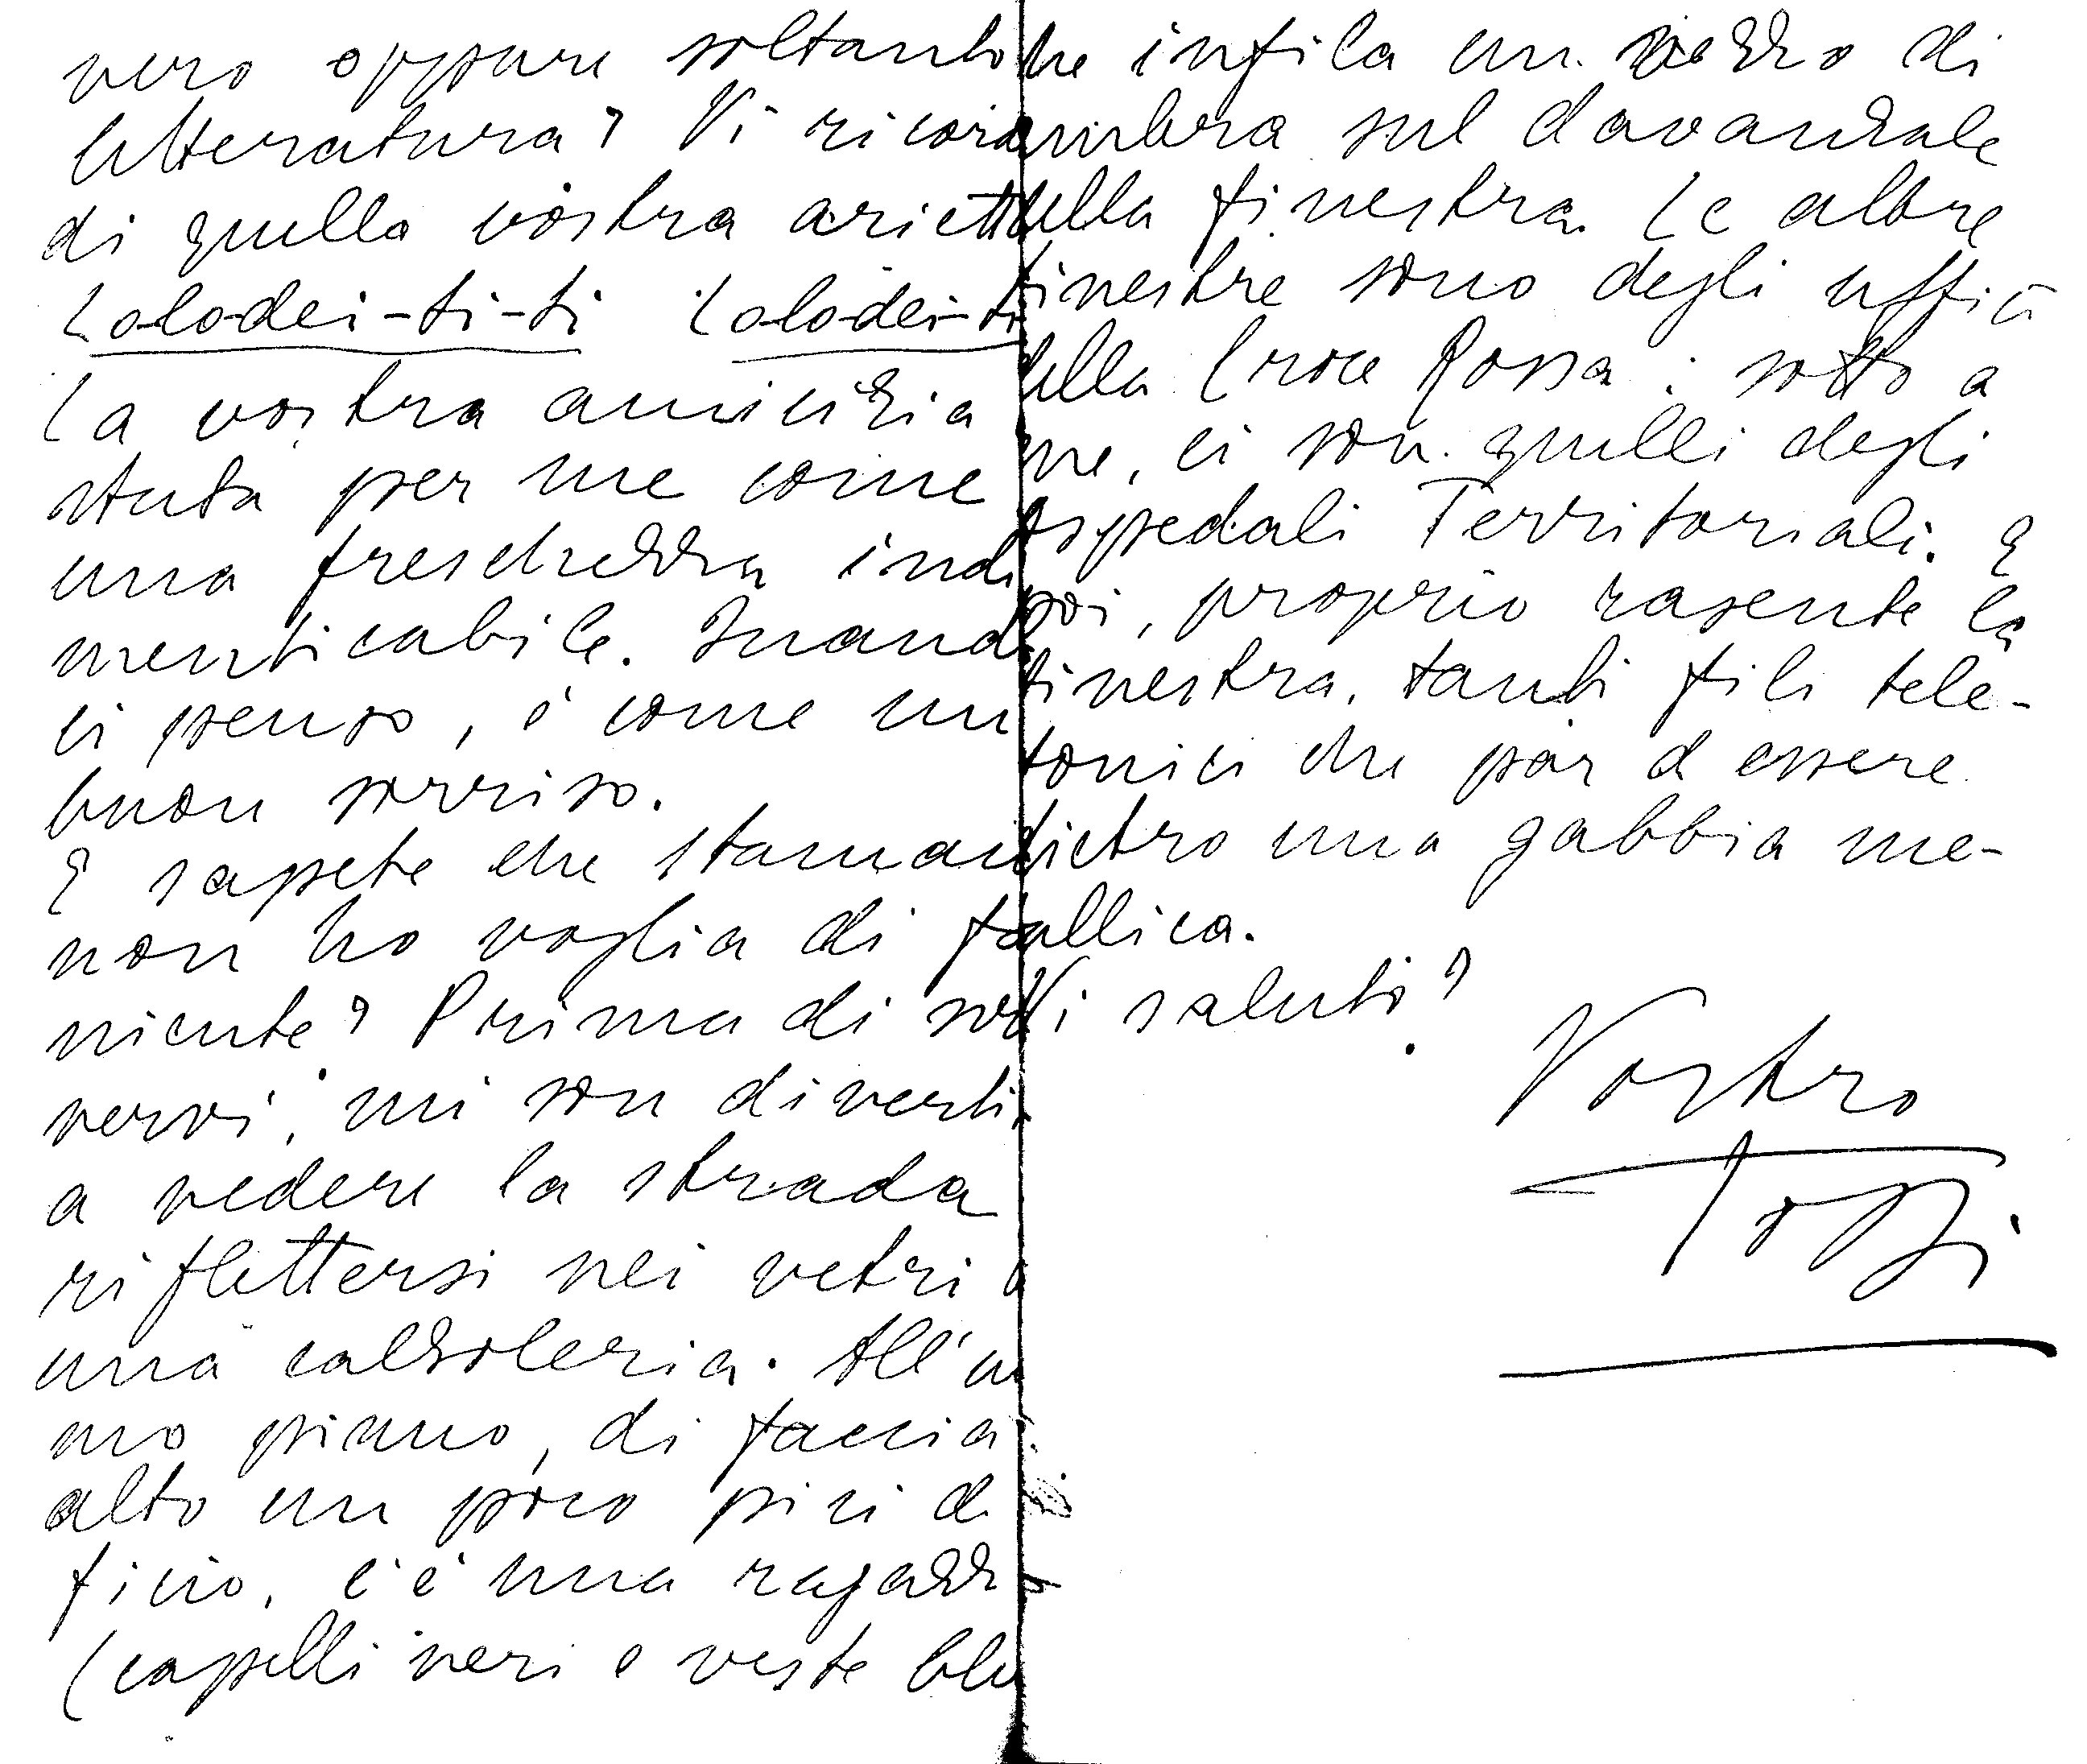 vero oppure soltanto
letteratura? Vi ricord
di quella vostra ariett
Lolodei-ti-ti Lolodei-ti
La vostra amicizia
stata per me come
una freschezza indi
menticabile. Quand
ci penso, è come un
buon sorriso.
E sapete che staman
non ho voglia di fa
niente? Prima di scri
vervi, mi son diverti
a vedere la strada
riflettersi nei vetri
una calzoleria. All'u
mo piano, di faccia
alto un poco più d
ficio, c'è una ragazz
(capelli neri e veste blu
he infila un vezzo di
ambra sul davanzale
della finestra. Le altre
finestre sono degli uffici
della Croce Rossa: sotto a
me, ci son quelli degli
Ospedali Territoriali. E
poi, proprio rasente la
finestra, tanti fili tele-
fonici che par d essere
dietro una gabbia me-
tallica.
Vi saluto?
Vostro
Tozzi